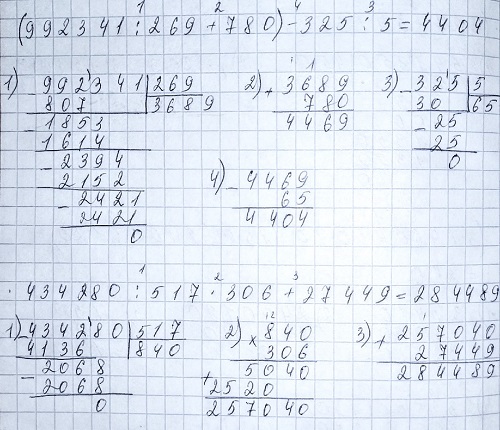 1 2 4 3
(992341 : 269 + 780) - 325 : 5 = 4404
1) - 992341 | 269
807 3689
- 1853
1614
- 2394
2152
- 2421
2421
0
2) + 3689
780
4469
3) - 325 | 5
30 65
- 25
25
0
4) - 4469
65
4404
1 2 3
434280 : 517 · 306 + 27449 = 284489
1) - 434280 | 517
4136 840
- 2068
2068
0
2) × 840
306
5040
+ 2520
257040
3) + 257040
27449
284489